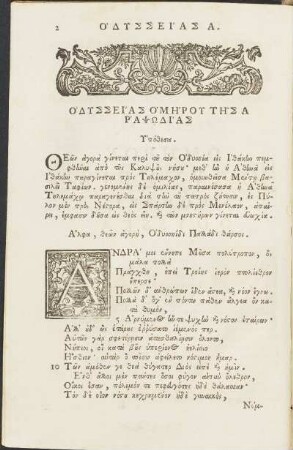 2 ὈΔΥΣΣΕΊΑΣ Α.
ὈΔΥΣΣΕΊΑΣ ὉΜΗΡΟΥ ΤΗ͂Σ Α
ΡΑΨΩΔΊΑΣ
Ὑπόθεσις.
ΘΕῶν ἀγορὰ γίνεται περὶ τοῦ τὸν Ὀδυσσέα εἰς Ἰθάκην πεμ-
φθῆναι ἀπὸ τῆς Καλυψοῦς νήσου· μεθ' ἣν ἡ Ἀθηνᾶ εἰς
Ἰθάκην παραγίνεται πρὸς Τηλέμαχον, ὁμοιωθεῖσα Μέντῃ βα-
σιλεῖ Ταφίων. γενομένης δὲ ὁμιλίας, παραινέσασα ἡ Ἀθηνᾶ
Τηλεμάχῳ παραγενέσθαι διὰ τὴν τοῦ πατρὸς ζήτησιν, εἰς Πύλον
μὲν πρὸς Νέστορα, εἰς Σπάρτην δὲ πρὸς Μενέλαον, ἀπαίρει,
ἔμφασιν δοῦσα ὡς θεὸς ἦν. καὶ τῶν μνηστήρων γίνεται εὐωχία.
Ἄλφα, θεῶν ἀγορὴ, Ὀδυσσηΐδι Παλλάδι θάρσος.
ἌΝΔΡΑ μοι ἔννεπε Μοῦσα πολύτροπον, ὃς
μάλα πολλὰ
Πλάγχθη, ἐπεὶ Τροίης ἱερὸν πτολίεθρον
ἔπερσε·
Πολλῶν δ' ἀνθρώπων ἴδεν ἄστεα, καὶ νόον ἔγνω.
Πολλὰ δ' ὅγ' ἐν πόντῳ πάθεν ἄλγεα ὃν κατὰ
θυμόν,
5 Ἀρνύμενος ἥν τε ψυχὴν καὶ νόστον ἑταίρων.
Ἀλλ' οὐδ' ὣς ἑτάρους ἐρρύσατο ἱέμενός περ.
Αὐτῶν γὰρ σφετέρῃσιν ἀτασθαλίῃσιν ὄλοντο,
Νήπιοι, οἳ κατὰ βοῦς ὑπερίονος ἠελίοιο
Ἤσθιον· αὐτὰρ ὁ τοῖσιν ἀφείλετο νόστιμον ἦμαρ.
10 Τῶν ἀμόθεν γε θεὰ θύγατερ Διὸς εἰπὲ καὶ ἡμῖν.
Ἔνθ' ἄλλοι μὲν πάντες ὅσοι φύγον αἰπὺν ὄλεθρον,
Οἴκοι ἔσαν, πόλεμόν τε πεφευγότες ἠδὲ θάλασσαν·
Τὸν δ' οἶον νόστου κεχρημένον ἠδὲ γυναικός,
Νύμ-